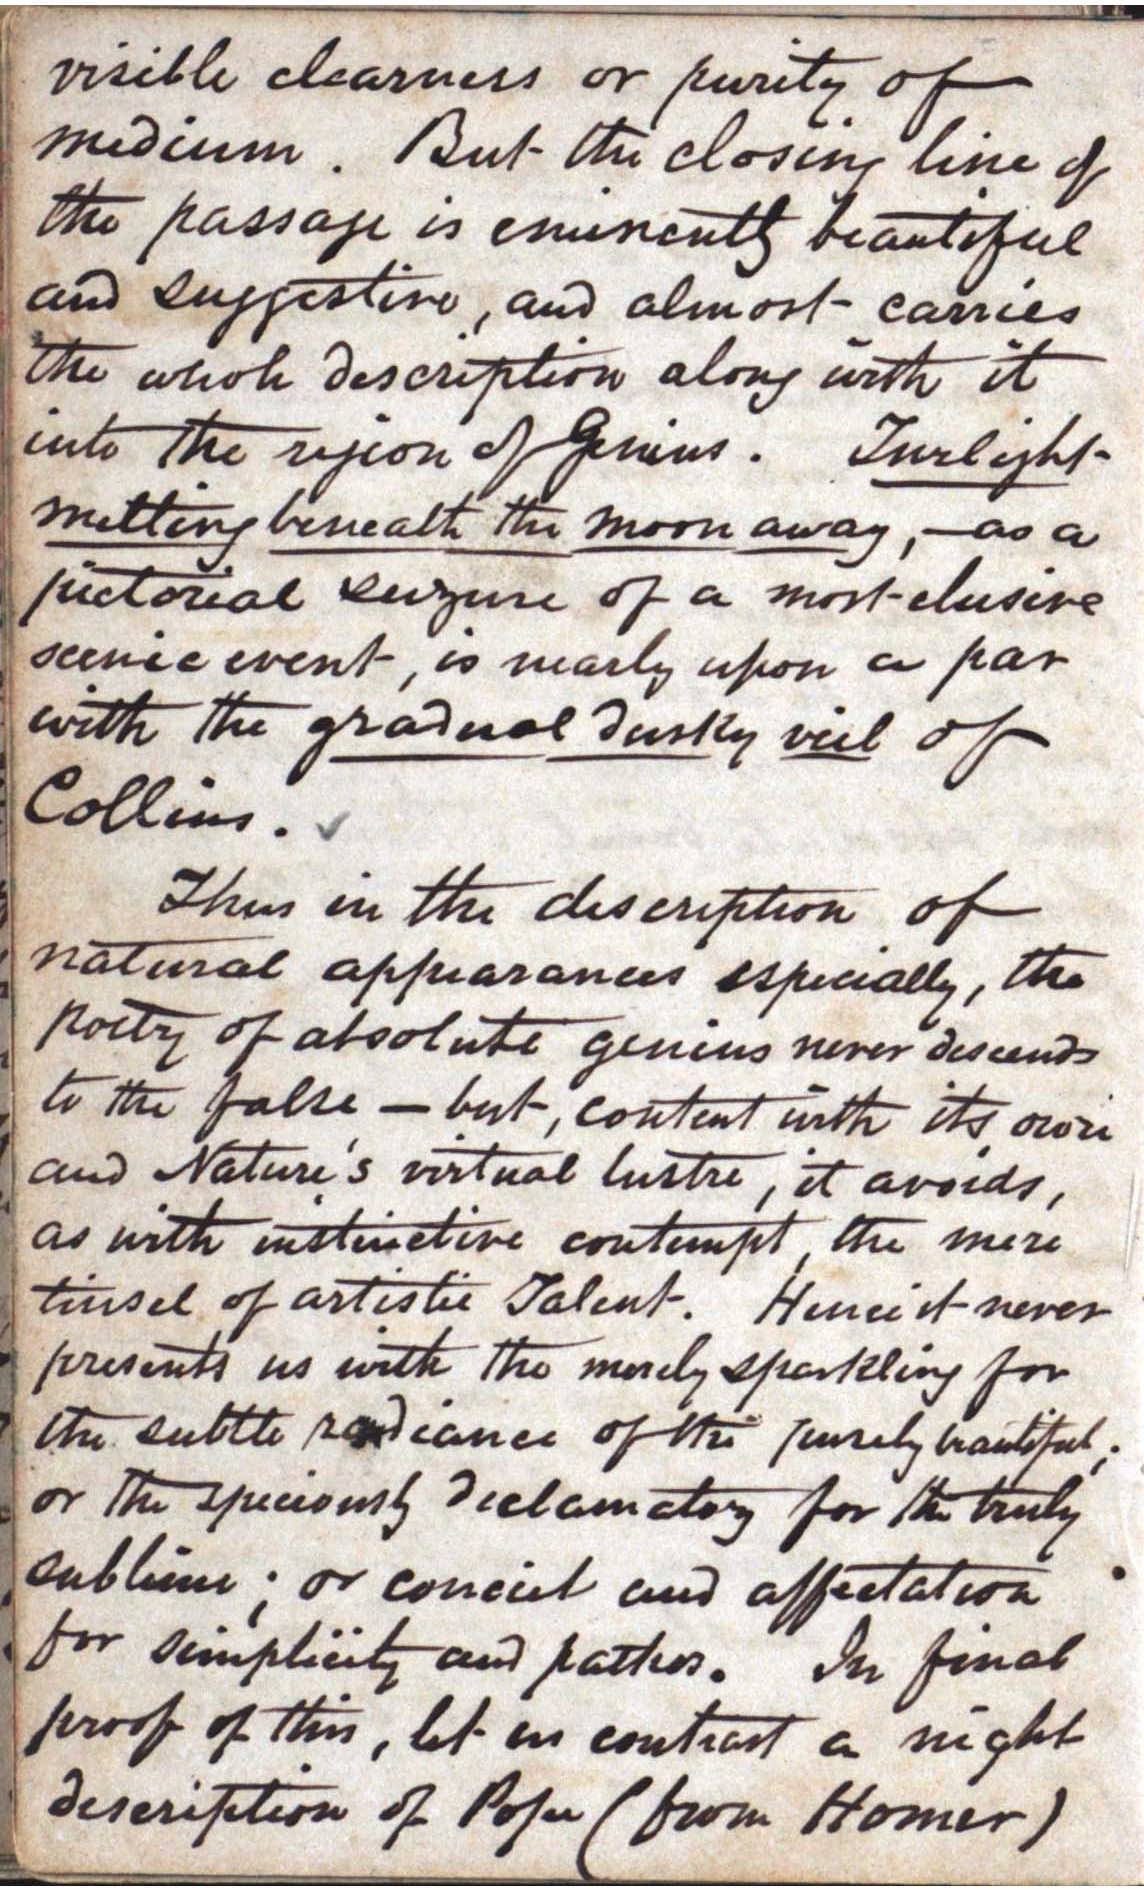 visible clearness or purity of
medium. But the closing line of
the passage is eminently beautiful
and suggestive, and almost carries
the whole description along with it
into the region of Genius. Twilight
melting beneath the moon away, — as a
pictorial seizure of a most elusive
scenic event, is nearly upon a par
with the gradual dusky veil of
Collins. ✓
Thus in the description of
natural appearances especially, the
poetry of absolute genius never descends
to the false — but, content with its own
and Nature's virtual lustre, it avoids,
as with instinctive contempt, the mere
tinsel of artistic Talent. Hence it never
presents us with the merely sparkling for
the subtle radiance of the purely beautiful;
or the speciously declamatory for the truly
sublime; or conceit and affectation
for simplicity and pathos. In final
proof of this, let us contrast a night
description of Pope (from Homer)